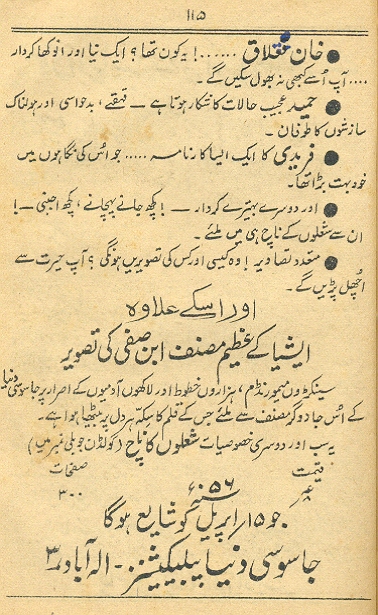 ۱۱۵
● خان مقلاق ......! یہ کون تھا؟ ایک نیا اور انوکھا کردار
.... آپ اُسے کبھی نہ بھول سکیں گے۔
● حمید عجیب حالات کا شکار ہوتا ہے — قہقہے، بدحواسی اور ہولناک
سازشوں کا طوفان۔
● فریدی کا ایک ایسا کارنامہ ..... جو اُس کی نگاہوں میں
خود بہت بڑا تھا۔
● اور دوسرے بہتیرے کردار — ! کچھ جانے پہچانے، کچھ اجنبی — !
ان سے شعلوں کے ناچ ہی میں ملئے۔
● متعدد تصاویر! وہ کیسی اور کس کی تصویریں ہونگی؟ آپ حیرت سے
اُچھل پڑیں گے۔
اور اسکے علاوہ
ایشیا کے عظیم مصنف ابن صفی کی تصویر
سینکڑوں میمورنڈم، ہزاروں خطوط اور لاکھوں آدمیوں کے اصرار پر جاسوسی دنیا
کے اُس جادوگر مصنف سے ملئے جس کے قلم کا سکہ ہر دل پر بیٹھا ہوا ہے۔
یہ سب اور دوسری خصوصیات شعلوں کا ناچ (گولڈن جوبلی نمبر میں)
قیمت صفحات
۳۰۰
جو ۱۵/ اپریل ۵۶ سنہء کو شایع ہوگا
جاسوسی دنیا پبلیکیشنز - الہ آباد ۳